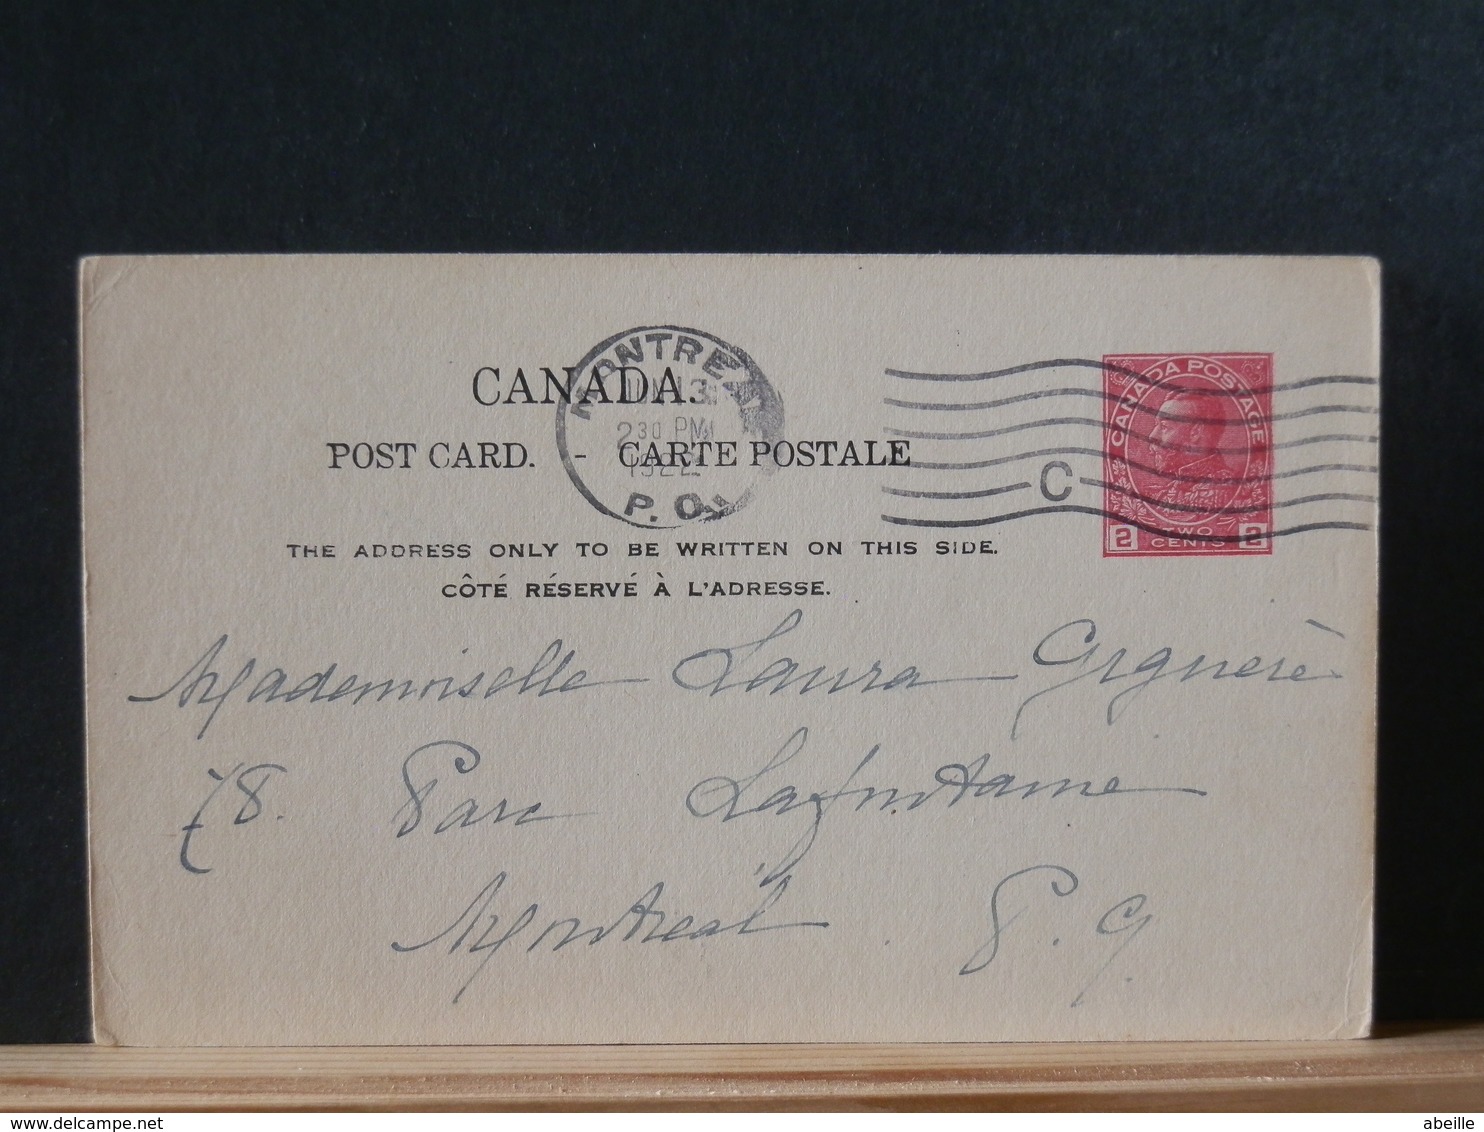 MONTREAL
JUN 13
2 30 PM
1922
P.Q.
CANADA.
POST CARD. - CARTE POSTALE
THE ADDRESS ONLY TO BE WRITTEN ON THIS SIDE.
CÔTÉ RÉSERVÉ À L'ADRESSE.
C
CANADA POSTAGE
2 TWO CENTS 2
Mademoiselle Laura
78. Parc Lafontaine
Montreal P. Q.
delcampe.net
abeille